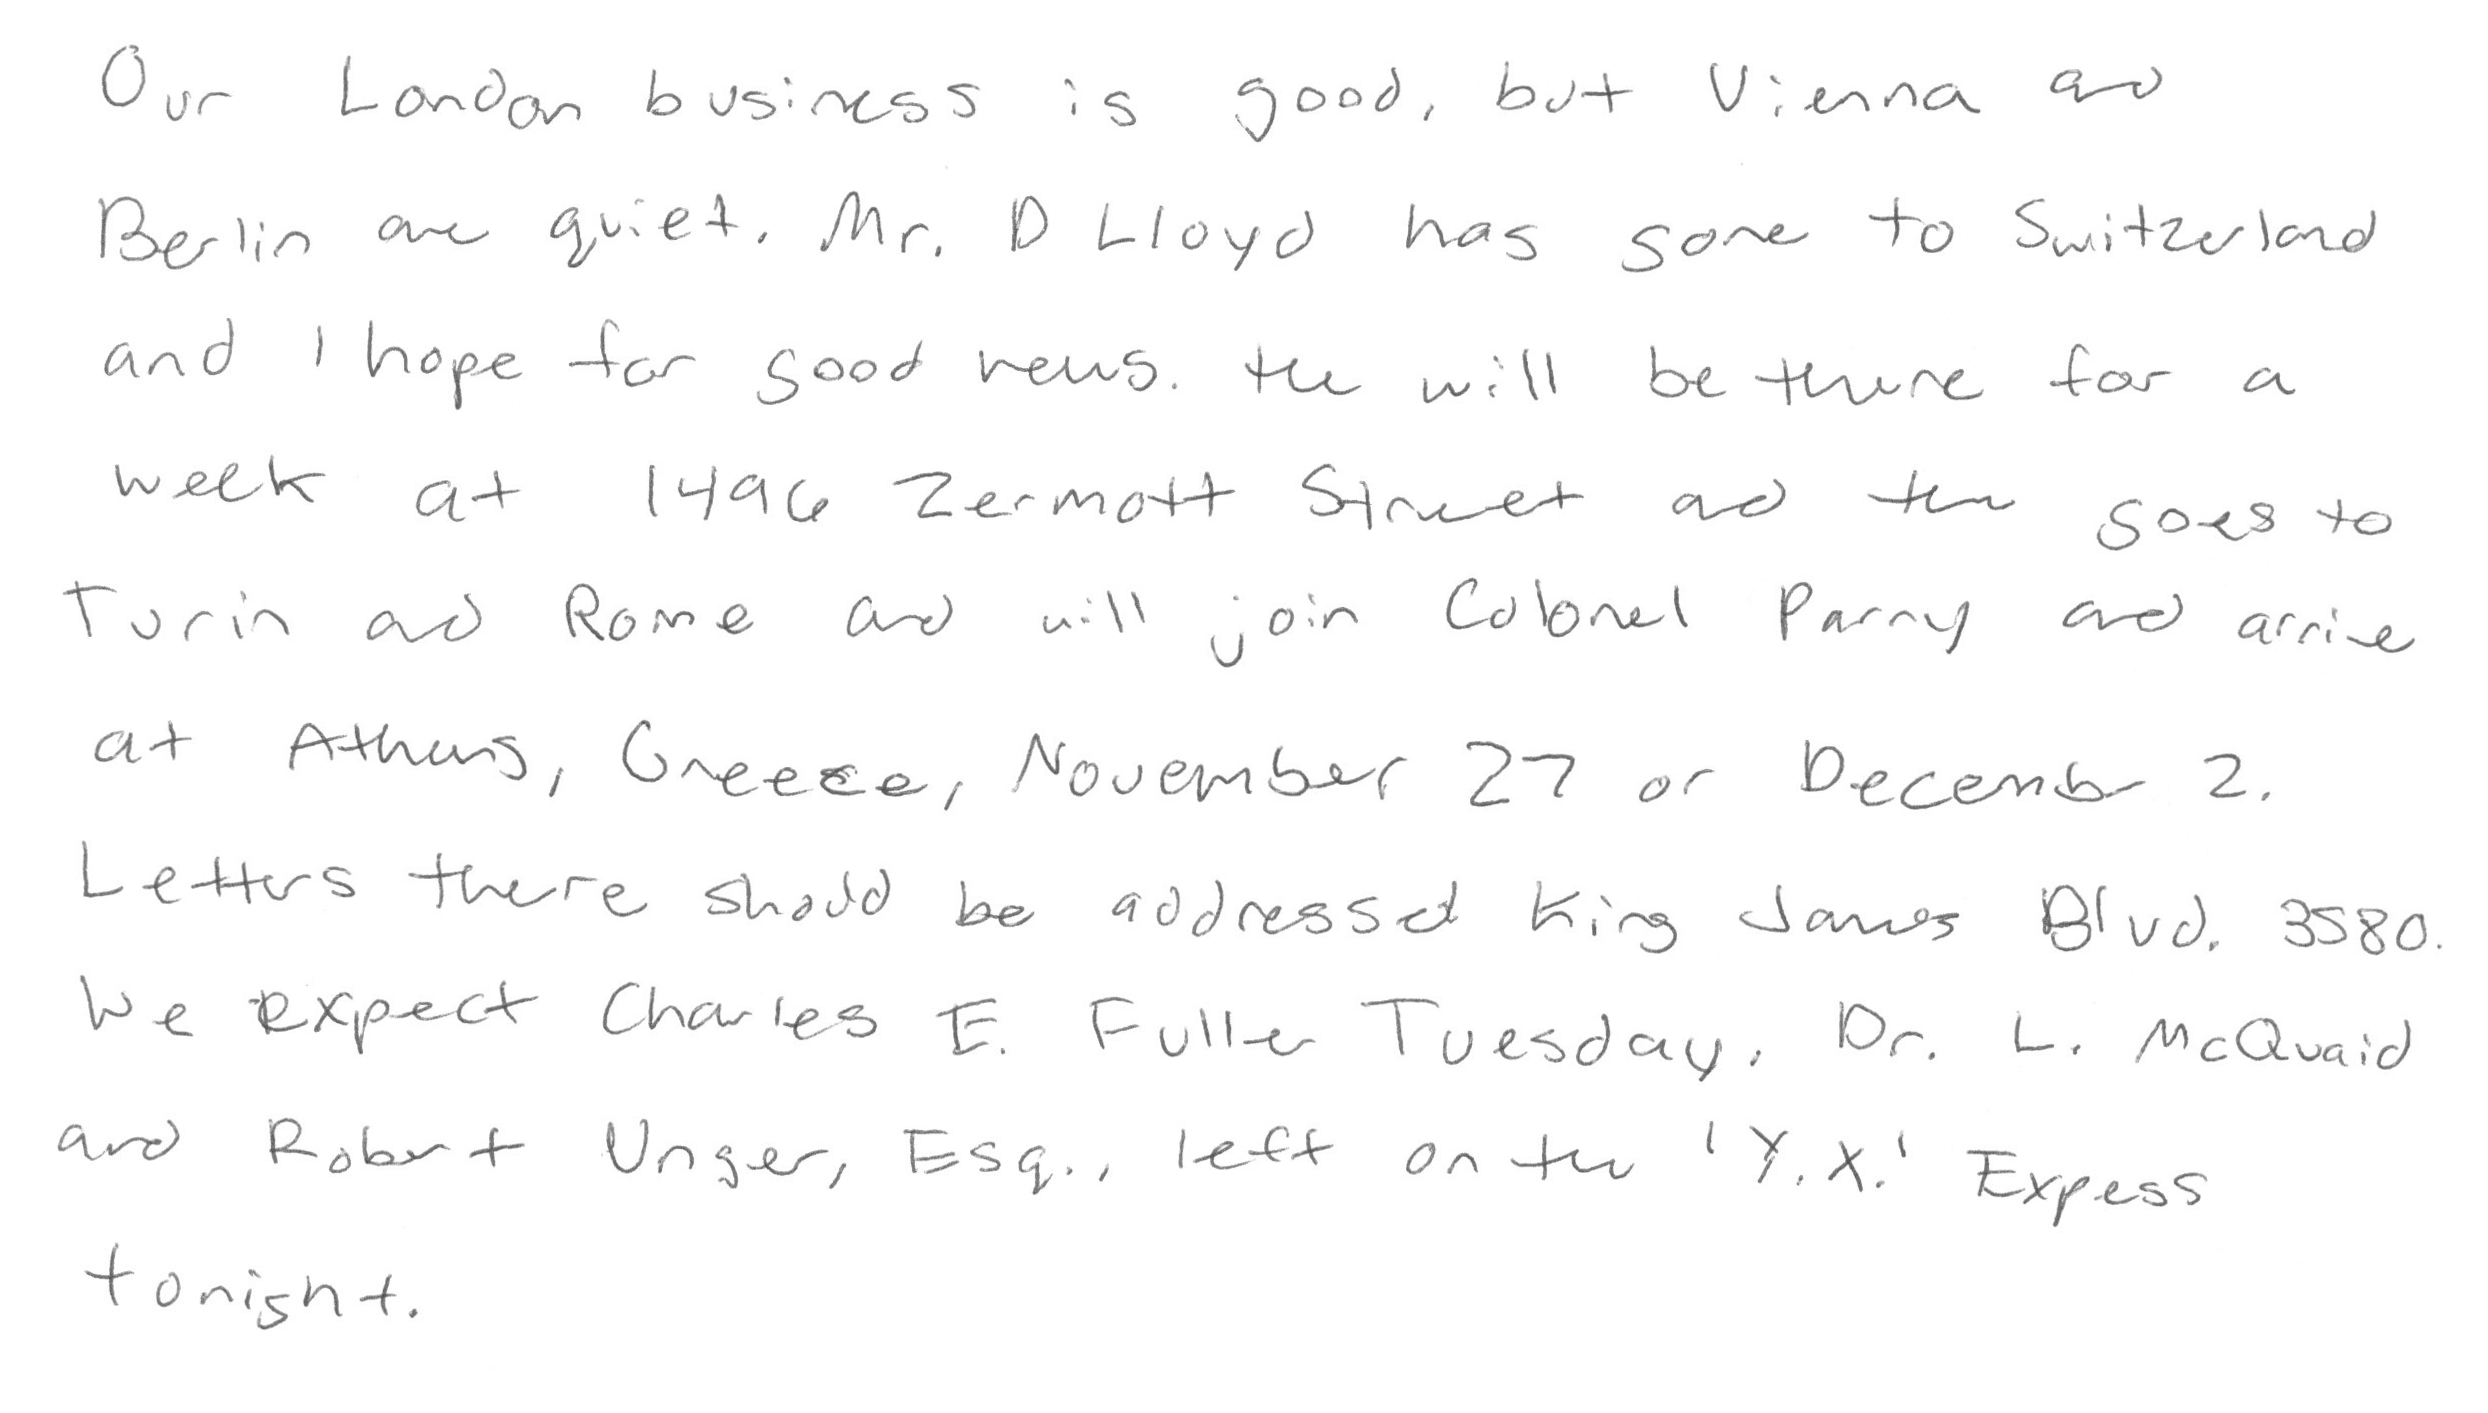 Our London business is good, but Vienna and
Berlin are quiet. Mr. D Lloyd has gone to Switzerland
and I hope for good news. He will be there for a
week at 1496 Zermott Street and then goes to
Turin and Rome and will join Colonel Parry and arrive
at Athens, Greece, November 27 or December 2.
Letters there should be addressed King James Blvd. 3580.
We expect Charles E. Fuller Tuesday. Dr. L. McQuaid
and Robert Unger, Esq., left on the 'Y.X.' Expess
tonight.